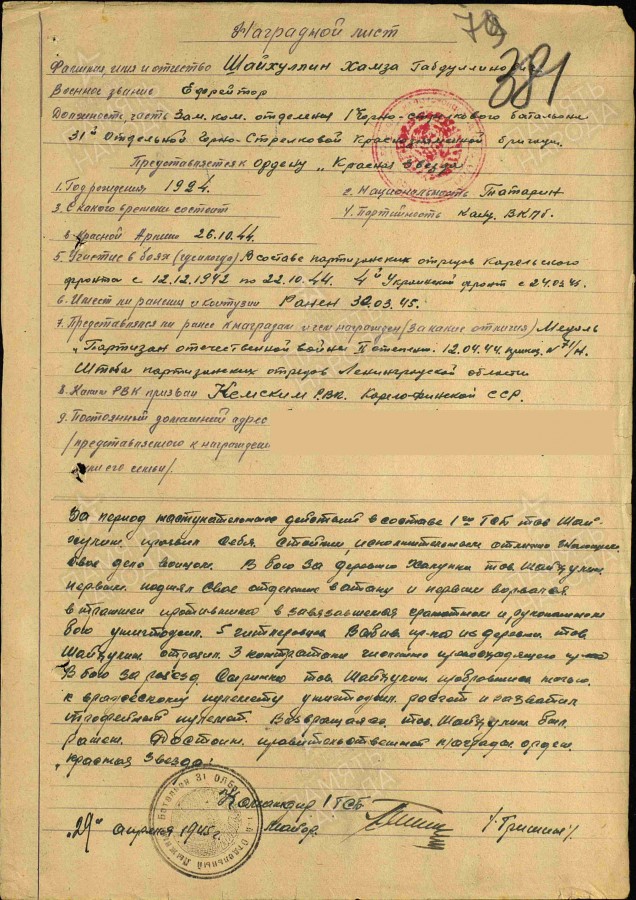 381
Наградной лист
Фамилия, имя и отчество Шайхуллин Хамза Габдуллинович
Военное звание Ефрейтор
Должность, часть Зам. ком. отделения 1 Горно-стрелкового батальона
31й Отдельной Горно-Стрелковой Краснознаменной бригады.
Представляется к Ордену "Красная Звезда"
1. Год рождения 1924. 2. Национальность Татарин
3. С какого времени состоит 4. Партийность канд. ВКПб.
в Красной Армии 26.10.44.
5. Участие в боях В составе партизанских отрядов Карельского
фронта с 12.12.1942 по 22.10.44. 4й Украинский фронт с 24.03.45.
6. Имеет ли ранения и контузии Ранен 30.03.45.
7. Представлялся ли ранее к наградам и чем награжден (за какие отличия) Медаль
"Партизан отечественной войны II степени. 12.04.44. приказ. № 71/н.
Штаба партизанских отрядов Ленинградской области
8. Каким РВК призван Кемским РВК. Карело-Финской ССР.
9. Постоянный домашний адрес
/представляемого к награждению
или его семьи/.
За период наступательных действий в составе 1го ГСБ тов. Шай-
хулин. проявил себя. стойким, исполнительным отлично знающим
свое дело воином. В бою за деревню тов. Шайхулин.
первым. поднял свое отделение в атаку и первым ворвался
в траншеи противника в завязавшемся рукопашном
бою уничтожил. 5 гитлеровцев. из деревни. тов.
Шайхулин. отразил. 3 контратаки численно превосходящего пр-ка
В бою за разъезд тов. Шайхулин.
к вражескому пулемету уничтожил. расчет и захватил
трофейный пулемет. Возвращаясь, тов. Шайхулин. был.
ранен. Достоин. правительственной награды орден.
"Красная Звезда".
Командир 1 ГСБ
"29" апреля 1945г. Майор. /Гришин/